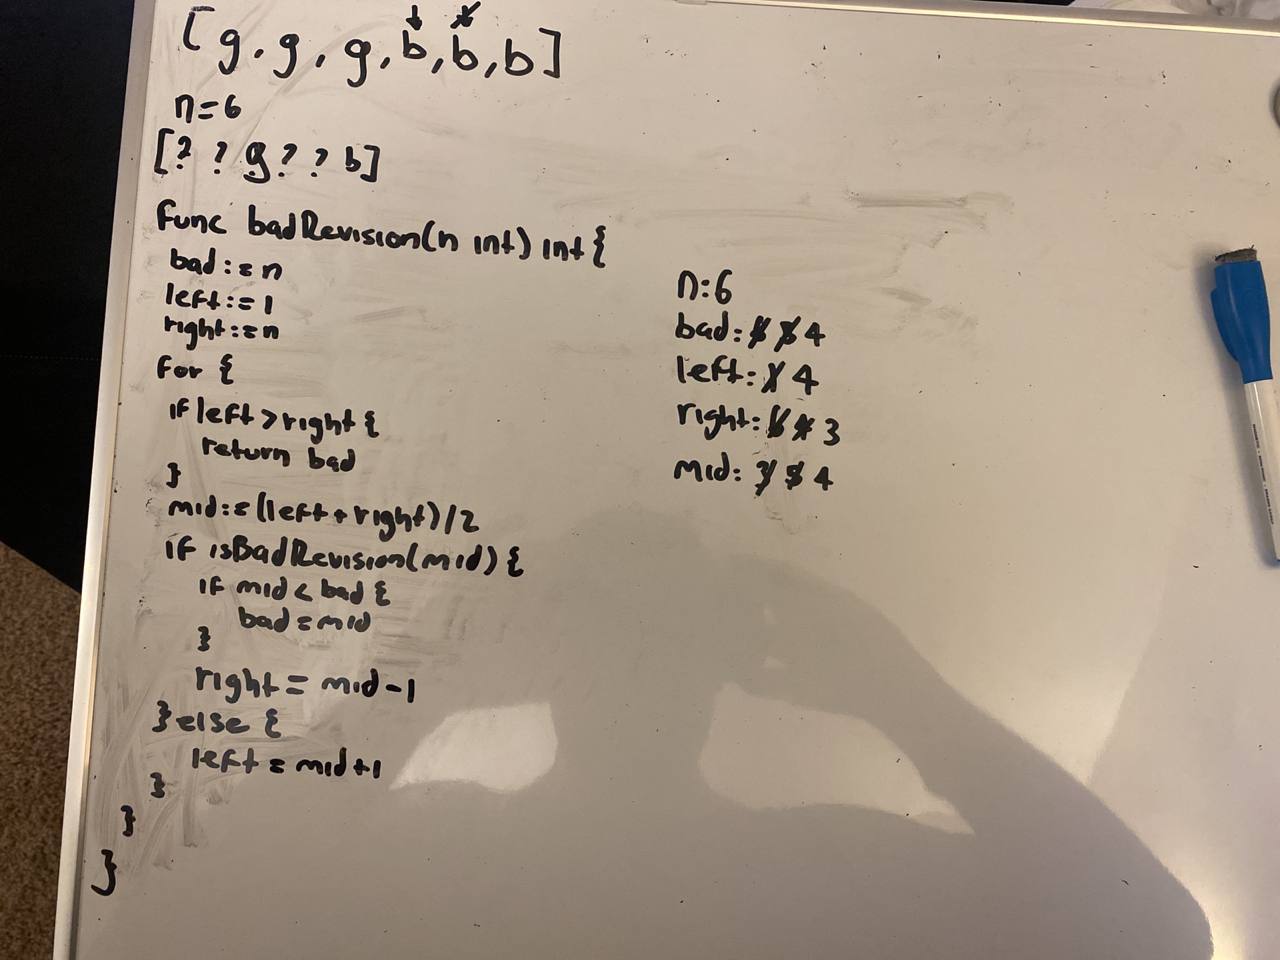 [g, g, g, b, b, b]
n=6
[? ? g ? ? b]
func badRevision(n int) int {
bad := n
left := 1
right := n
for {
if left > right {
return bad
}
mid := (left + right)/2
if isBadRevision(mid) {
if mid < bad {
bad = mid
}
right = mid-1
} else {
left = mid+1
}
}
}
n: 6
bad: 6 5 4
left: 1 4
right: 6 4 3
mid: 3 5 4